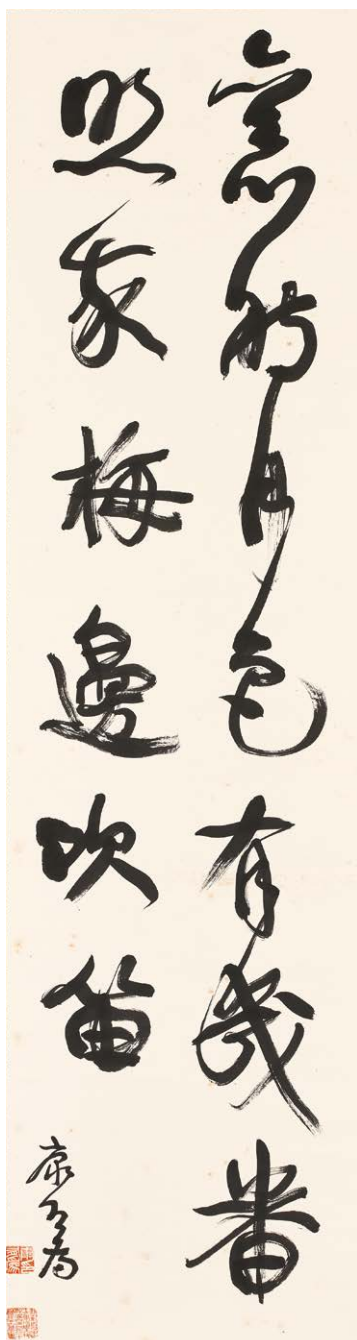 舊時月色有幾番
照我梅邊吹笛
康有為